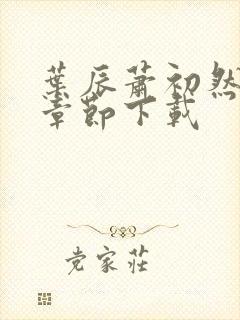 葉辰蕭初然
章節下載
党家莊